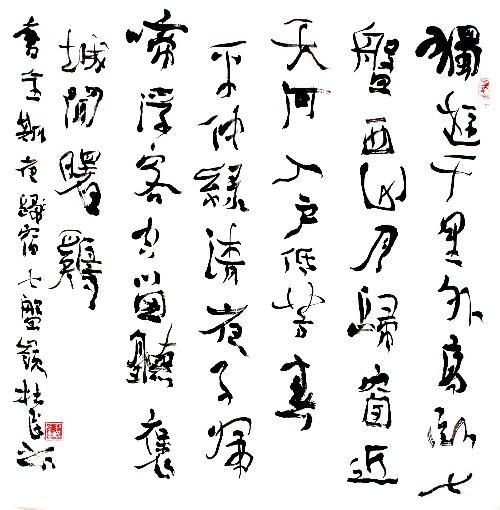 獨遊千里外高臥七
盤西山月臨窗近
天河入戶低芳春
平仲綠清夜子帰
啼浮客空留聽褒
城聞曙雞
書 期夜 宿七盤嶺杜